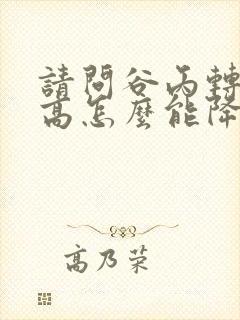 請問谷丙轉
高怎麼能降
高乃榮